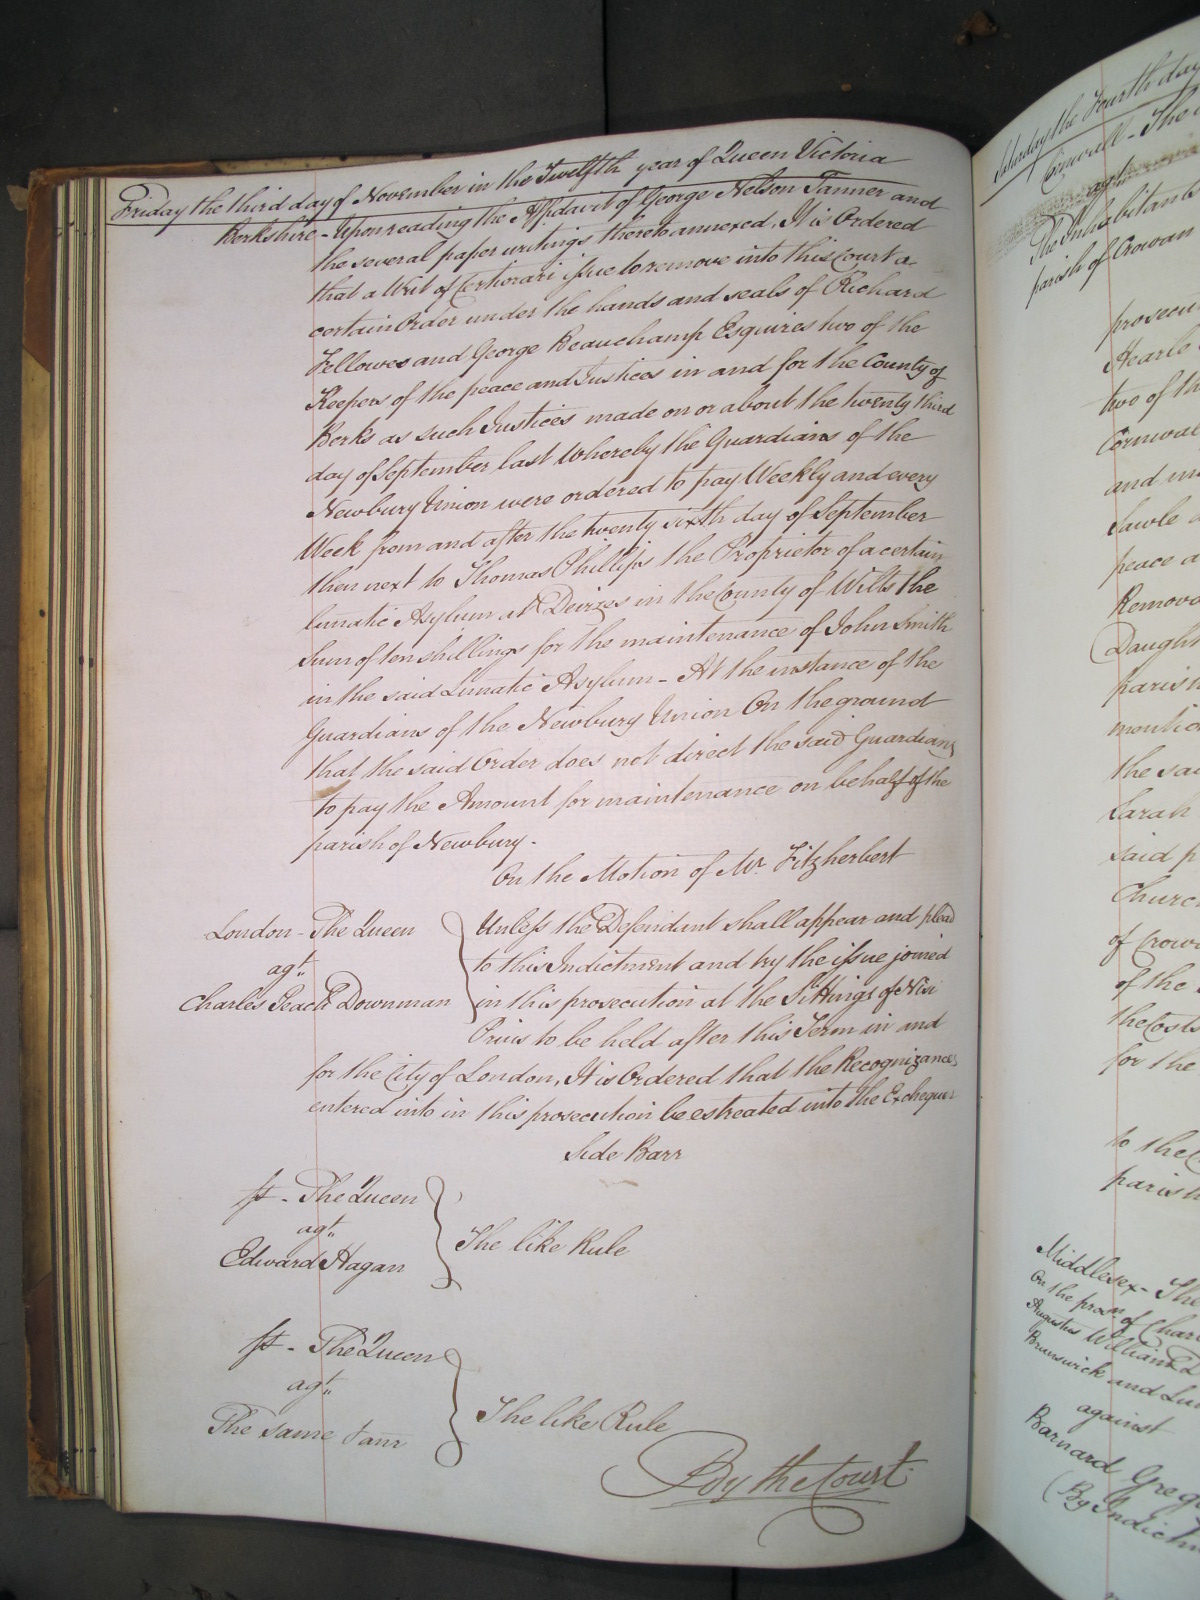 Friday the third day of November in the Twelfth year of Queen Victoria
Berkshire - Upon reading the Affidavit of George Nelson Tanner and
the several paper writings thereto annexed, It is Ordered
that a Writ of Certiorari issue to remove into this Court a
certain Order under the hands and seals of Richard
Fellowes and George Beauchamp Esquires two of the
Keepers of the peace and Justices in and for the County of
Berks as such Justices made on or about the twenty third
day of September last Whereby the Guardians of the
Newbury Union were ordered to pay Weekly and every
Week from and after the twenty sixth day of September
then next to Thomas Phillips the Proprietor of a certain
lunatic Asylum at Devizes in the County of Wilts the
Sum of ten shillings for the maintenance of John Smith
in the said Lunatic Asylum - At the instance of the
Guardians of the Newbury Union On the ground
that the said Order does not direct the said Guardians
to pay the Amount for maintenance on behalf of the
parish of Newbury.
On the Motion of Mr. Fitzherbert
London - The Queen
agt.
Charles Downman
Unless the Defendant shall appear and plead
to this Indictment and try the issue joined
in this prosecution at the Sittings of Nisi
Prius to be held after this Term in and
for the City of London, It is Ordered that the Recognizances
entered into in this prosecution be estreated into the Exchequer
Side Barr
The Queen
agt.
Edward Hagan
The like Rule
The Queen
agt.
The same
The like Rule
By the Court
Saturday the Fourth day
Cornwall - The
agt.
The Inhabitants
parish of Crowan
prosecu
Hearle
two of th
Cornwal
and in
Sawle
peace a
Remova
(Daught
parish
mentio
the sai
Sarah
said p
Churc
of Crow
of the
the Costs
for the
to the C
parish
Middlesex - The
On the pros of Charl
Augustus William
Brunswick and Lu
against
Barnard Greg
(By Indictm